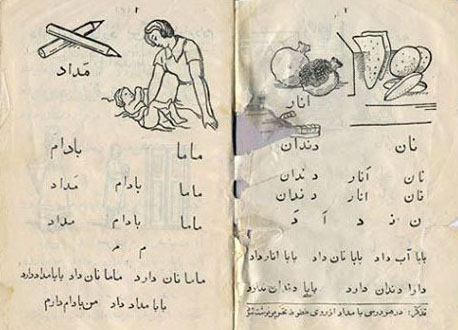 انار
نان دندان
نان انار دندان
نان انار دندان
بابا آب داد بابا نان داد بابا انار داد
دارا دندان دارد بابا دندان ندارد
تذکر: در هر درسی با مداد از روی خطوط
مَداد
ماما بادام
ماما بادام مَداد
ماما بادام مداد
م م
ماما نان دارد ماما نان داد بابا مداد دارد
بابا مداد داد من بادام دارم